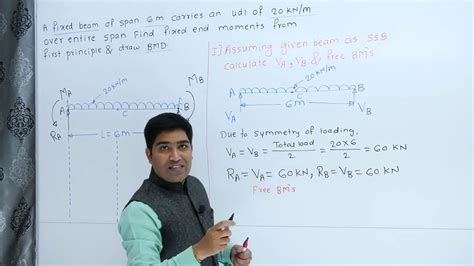 A fixed beam of span 6m carries an udl of 20 KN/m
over entire span Find fixed end moments from
first principle & draw BMD.
MA
MB
20KN/m
A
C
B
RA
RB
L = 6m
I] Assuming given beam as SSB
calculate VA, VB & free BM's
20KN/m
A
C
B
6m
VA
VB
Due to symmetry of loading,
VA = VB = Total load / 2 = 20×6 / 2 = 60 KN
RA = VA = 60 KN, RB = VB = 60 KN
Free BM's